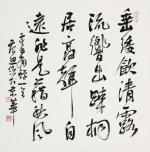 垂緌飲清露
流響出疎桐
居高聲自
遠非是藉秋風